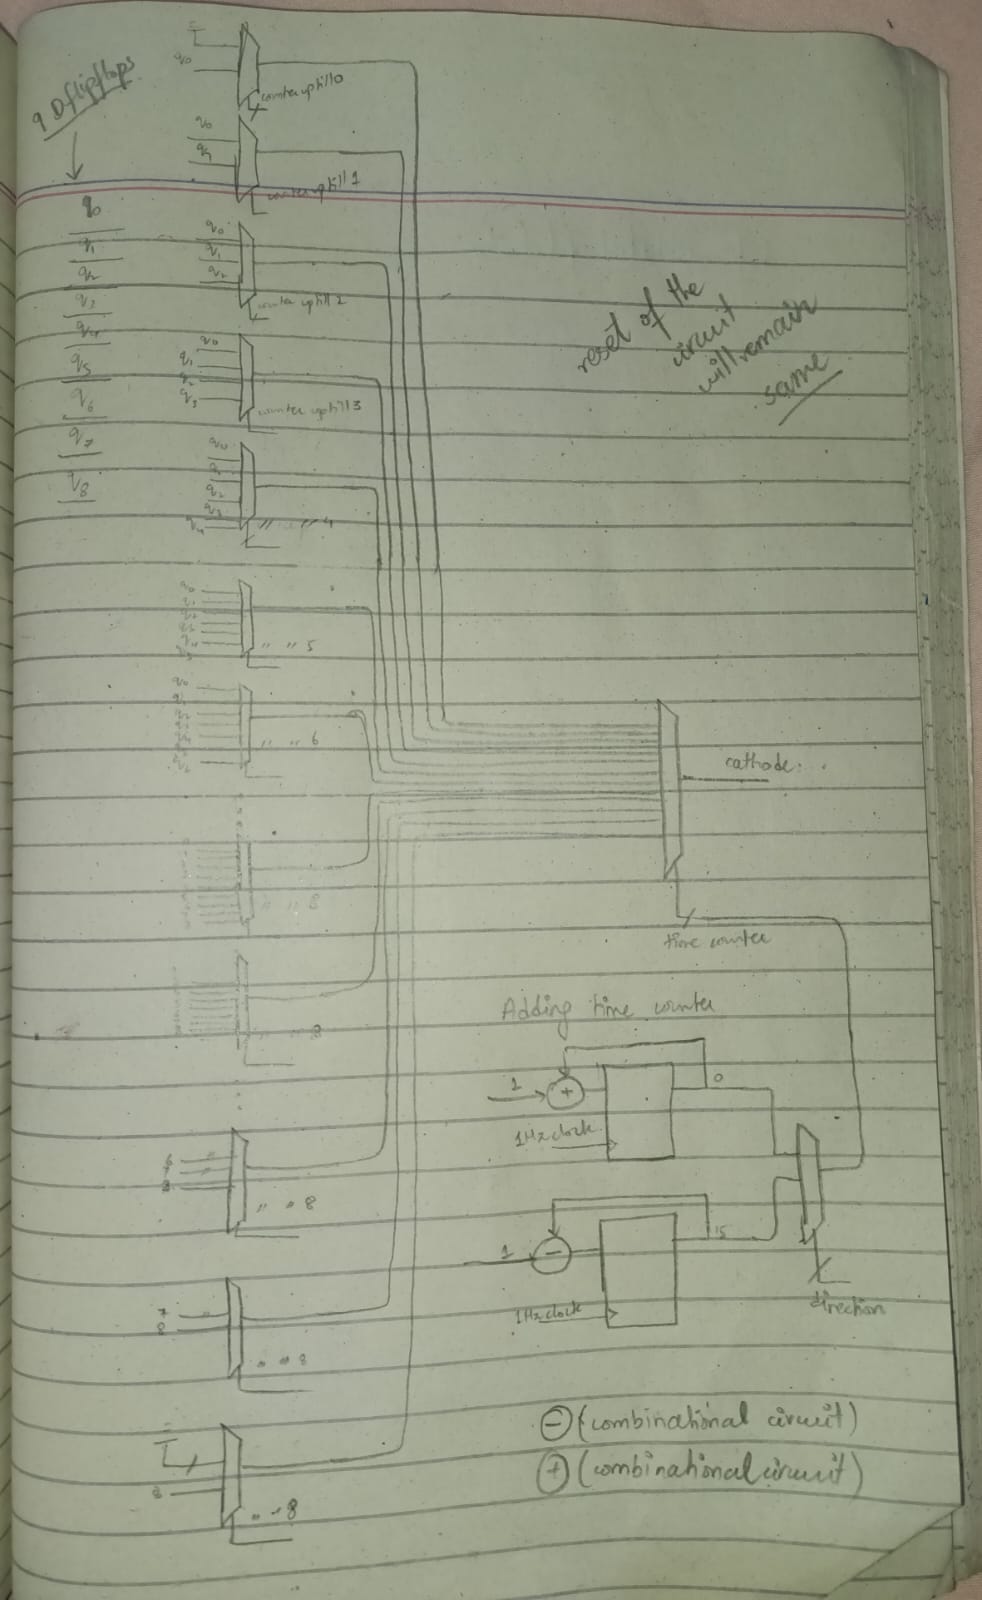 9 D flipflops
q0
q1
q2
q3
q4
q5
q6
q7
q8
q0
counter uptill 0
q0
q1
counter uptill 1
q0
q1
q2
counter uptill 2
q0
q1
q2
q3
counter uptill 3
q0
q1
q2
q3
q4
" " 4
" " 5
" " 6
" " 8
6
7
8
" " 8
7
8
" " 8
8
" " 8
reset of the
circuit
will remain
same
cathode
time counter
Adding time counter
1
+
0
1Hz clock
1
-
15
1Hz clock
direction
- (combinational circuit)
+ (combinational circuit)